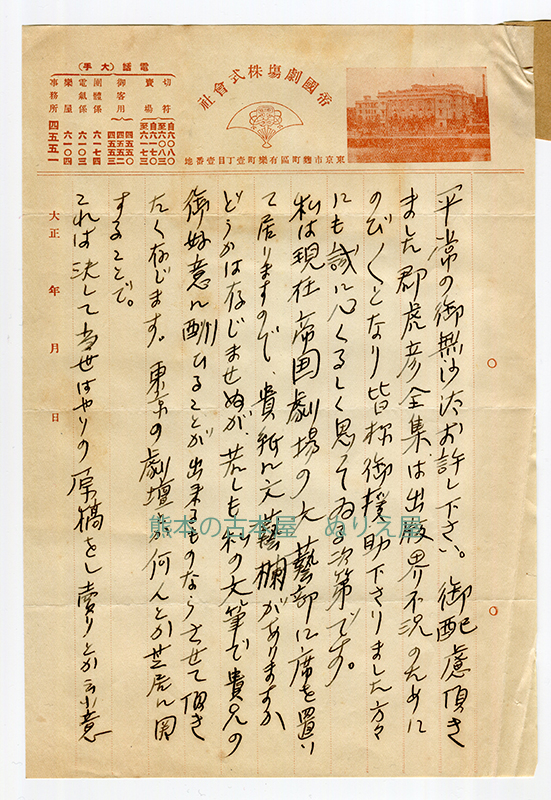 帝國劇塲株式會社
東京市麴町區有樂町壹丁目壹番地
電話(大手)
切符賣場
自六〇八〇
至六〇八三
自六一七〇
至六一七三
御客用
四五五〇
四五五二
四五五三
團體係 六一七四
電氣係 六一〇三
樂屋 六一〇四
事務所 四五五一
平常の御無沙汰お許し下さい。御配慮頂き
ました郡虎彦全集は出版界不況のために
のびのびとなり皆様御援助下さりました方々
にも誠に心くるしく思つてゐる次第です。
私は現在帝国劇場の文藝部に席を置い
て居りますので、貴紙に文藝欄がありますか
どうかは存じませぬが、若しも私の文筆で貴兄の
御好意に酬ひることが出来るものならさせて頂き
たく存じます。東京の劇壇か何んとか芝居に関
することで。
これは決して当世はやりの原稿をし賣りとか云ふ意
大正 年 月 日
熊本の古本屋 ぬりえ屋